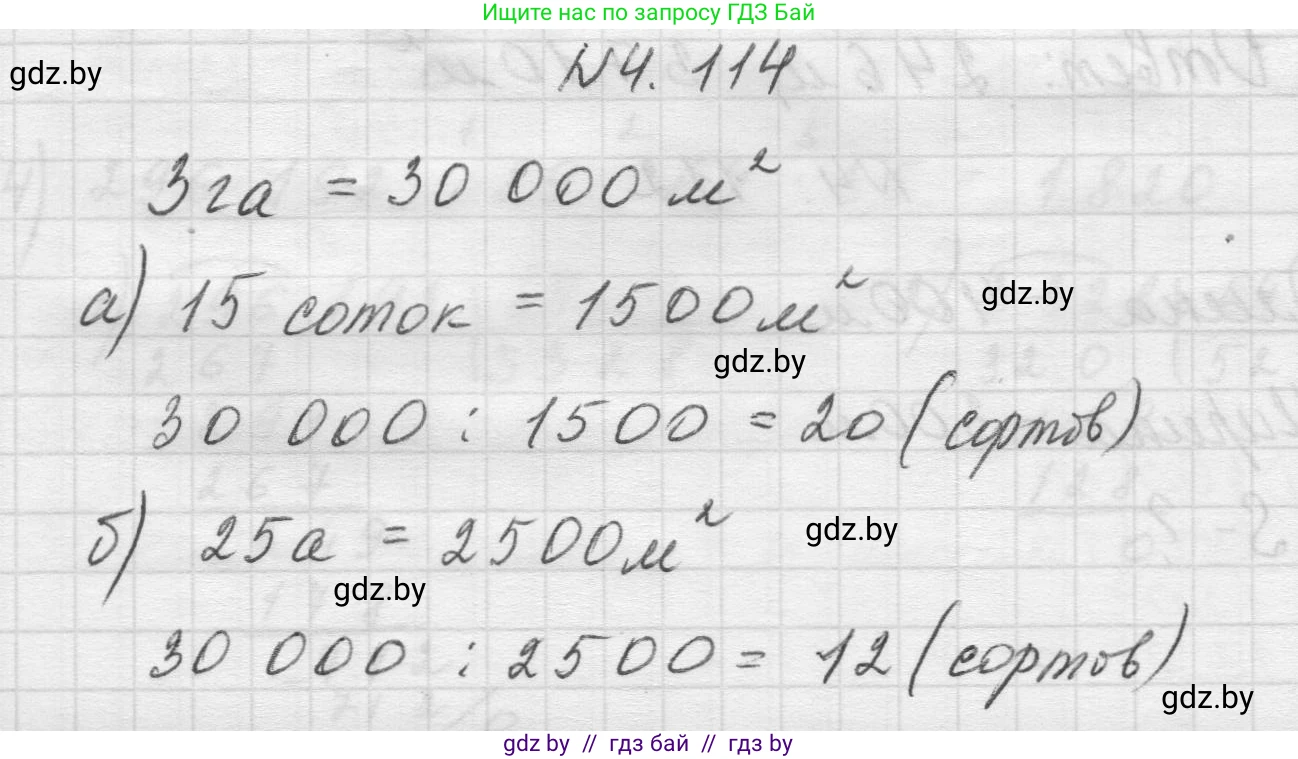 Ищите нас по запросу ГДЗ Бай
gdz.by
N4.114
3га = 30 000 м²
а) 15 соток = 1500 м²
gdz.by
gdz.by
30 000 : 1500 = 20 (сортов)
б) 25а = 2500 м²
gdz.by
gdz.by
30 000 : 2500 = 12 (сортов)
gdz.by
gdz.by // гдз бай // гдз by